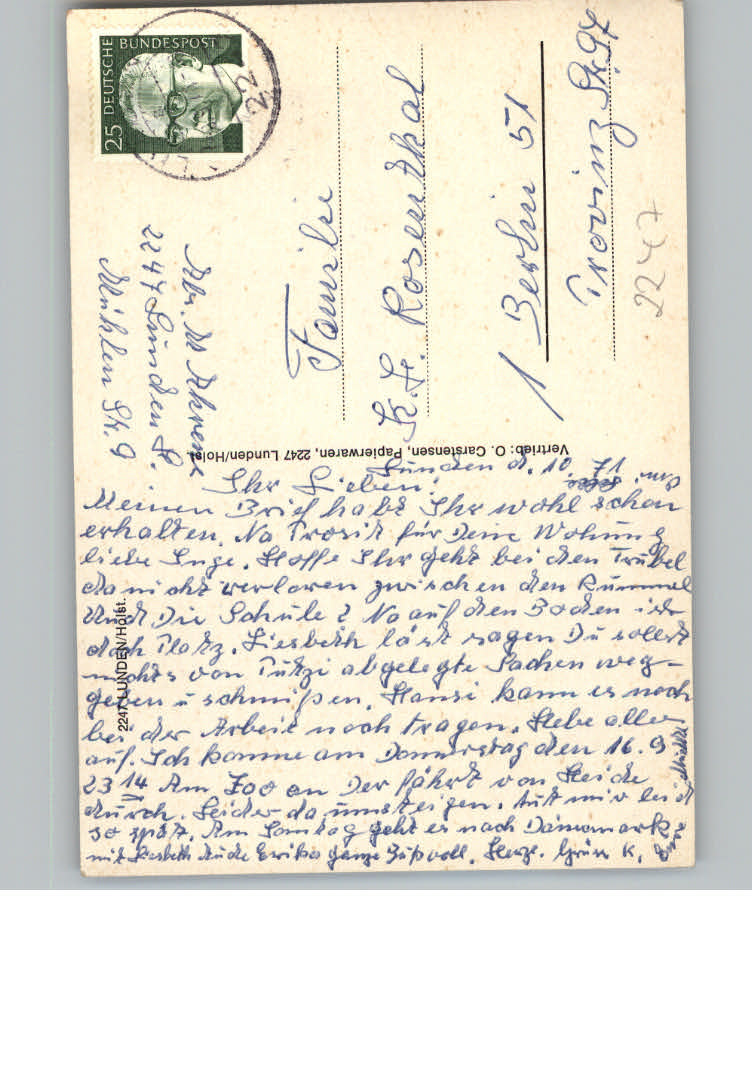 DEUTSCHE BUNDESPOST
25
Abs. M Ahrens
2247 Lunden H.
Mühlen Str. 9
Familie
K. H. Rosenthal
1 Berlin 51
Provinz Str. 97
2247
Vertrieb: O. Carstensen, Papierwaren, 2247 Lunden/Holst.
2247 LUNDEN/Holst.
Lunden d. 10. 71
Ihr Lieben!
Meinen Brief habt Ihr wohl schon
erhalten. Na Prosit für Deine Wohnung
liebe Inge. Hoffe Ihr geht bei den Trubel
da nicht verloren zwischen den Rummel
Und Die Schule? Na auf den Boden ist
doch Platz. Liesbeth läst sagen Du sollst
nichts von Putzi abgelegte Sachen weg-
geben u schmißen. Hansi kann es noch
bei der Arbeit noch tragen. Hebe alles
auf. Ich komme am Donnerstag den 16. 9
23 14 Am Zoo an Der fährt von Heide
durch. Leider da umsteigen. Tut mir leid
so spät. Am Sonntag geht es nach Dänemark
mit Liesbeth Erika ganze Bus voll. Herzl. Grüss